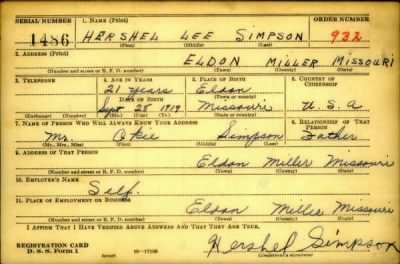 SERIAL NUMBER 1. NAME (Print) ORDER NUMBER
1486 HERSHEL LEE SIMPSON 932
(First) (Middle) (Last)
2. ADDRESS (Print)
ELDON MILLER MISSOURI
(Number and street or R. F. D. number) (Town) (County) (State)
3. TELEPHONE 4. AGE IN YEARS 5. PLACE OF BIRTH 6. COUNTRY OF CITIZENSHIP
21 years Eldon
DATE OF BIRTH (Town or county)
Sept 28 1919 Missouri U.S.A
(Exchange) (Number) (Mo.) (Day) (Yr.) (State or country)
7. NAME OF PERSON WHO WILL ALWAYS KNOW YOUR ADDRESS 8. RELATIONSHIP OF THAT PERSON
Mr. Okie Simpson Father
(Mr., Mrs., Miss) (First) (Middle) (Last)
9. ADDRESS OF THAT PERSON
Eldon Miller Missouri
(Number and street or R. F. D. number) (Town) (County) (State)
10. EMPLOYER'S NAME
Self.
11. PLACE OF EMPLOYMENT OR BUSINESS
Eldon Miller Missouri
(Number and street or R. F. D. number) (Town) (County) (State)
I AFFIRM THAT I HAVE VERIFIED ABOVE ANSWERS AND THAT THEY ARE TRUE.
REGISTRATION CARD
D. S. S. Form 1 (over) Hershel Simpson